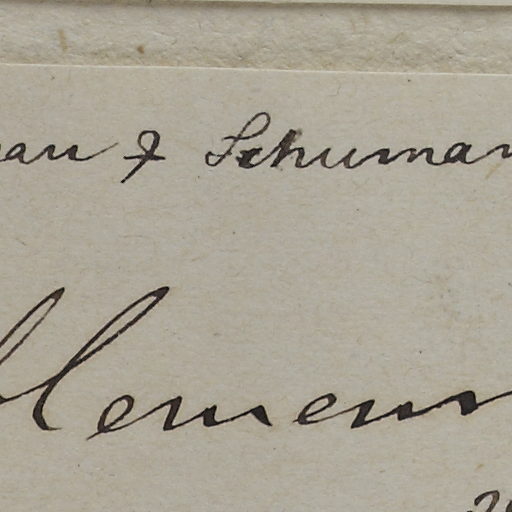 an & Schuman
Clemens